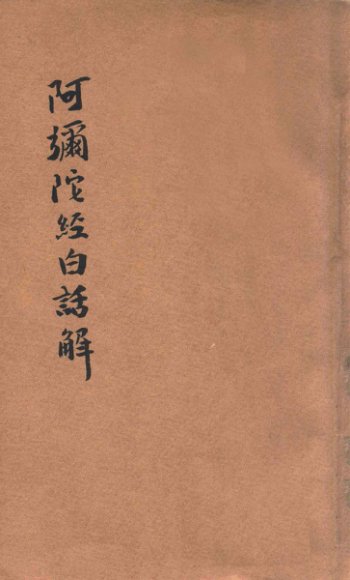 阿彌陀經白話解